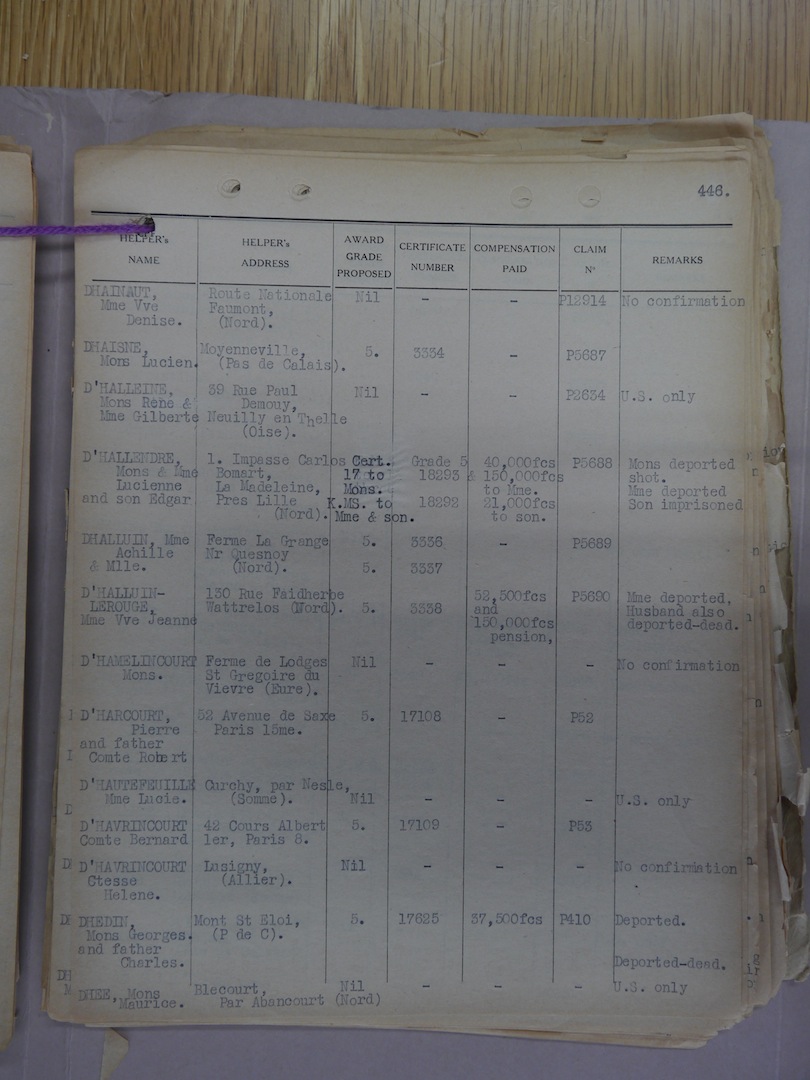 446.
HELPER's NAME
HELPER's ADDRESS
AWARD GRADE PROPOSED
CERTIFICATE NUMBER
COMPENSATION PAID
CLAIM Nº
REMARKS
DHAINAUT, Route Nationale Nil - - P12914 No confirmation
Mme Vve Faumont,
Denise. (Nord).
DHAISNE, Moyenneville, 5. 3334 - P5687
Mons Lucien. (Pas de Calais).
D'HALLEINE, 39 Rue Paul Nil - - P2634 U.S. only
Mons Rene & Demouy,
Mme Gilberte Neuilly en Thelle
(Oise).
D'HALLENDRE, 1. Impasse Carlos Cert. Grade 5 40,000fcs P5688 Mons deported
Mons & Mme Bomart, 17 to 18293 & 150,000fcs shot.
Lucienne La Madeleine, Mons. to Mme. Mme deported
and son Edgar Pres Lille K.MS. to 18292 21,000fcs Son imprisoned
(Nord). Mme & son. to son.
DHALLUIN, Mme Ferme La Grange 5. 3336 - P5689
Achille Nr Quesnoy
& Mlle. (Nord). 5. 3337
D'HALLUIN- 130 Rue Faidherbe 52,500fcs P5690 Mme deported,
LEROUGE, Wattrelos (Nord). 5. 3338 and Husband also
Mme Vve Jeanne 150,000fcs deported-dead.
pension,
D'HAMELINCOURT Ferme de Lodges Nil - - - No confirmation
Mons. St Gregoire du
Vievre (Eure).
D'HARCOURT, 52 Avenue de Saxe 5. 17108 - P52
Pierre Paris 15me.
and father
Comte Robert
D'HAUTEFEUILLE Curchy, par Nesle,
Mme Lucie. (Somme). Nil - - - U.S. only
D'HAVRINCOURT 42 Cours Albert 5. 17109 - P53
Comte Bernard 1er, Paris 8.
D'HAVRINCOURT Lusigny, Nil - - - No confirmation
Ctesse (Allier).
Helene.
DHEDIN, Mont St Eloi, 5. 17625 37,500fcs P410 Deported.
Mons Georges. (P de C).
and father
Charles. Deported-dead.
DHEE, Mons Blecourt, Nil - - - U.S. only
Maurice. Par Abancourt (Nord)